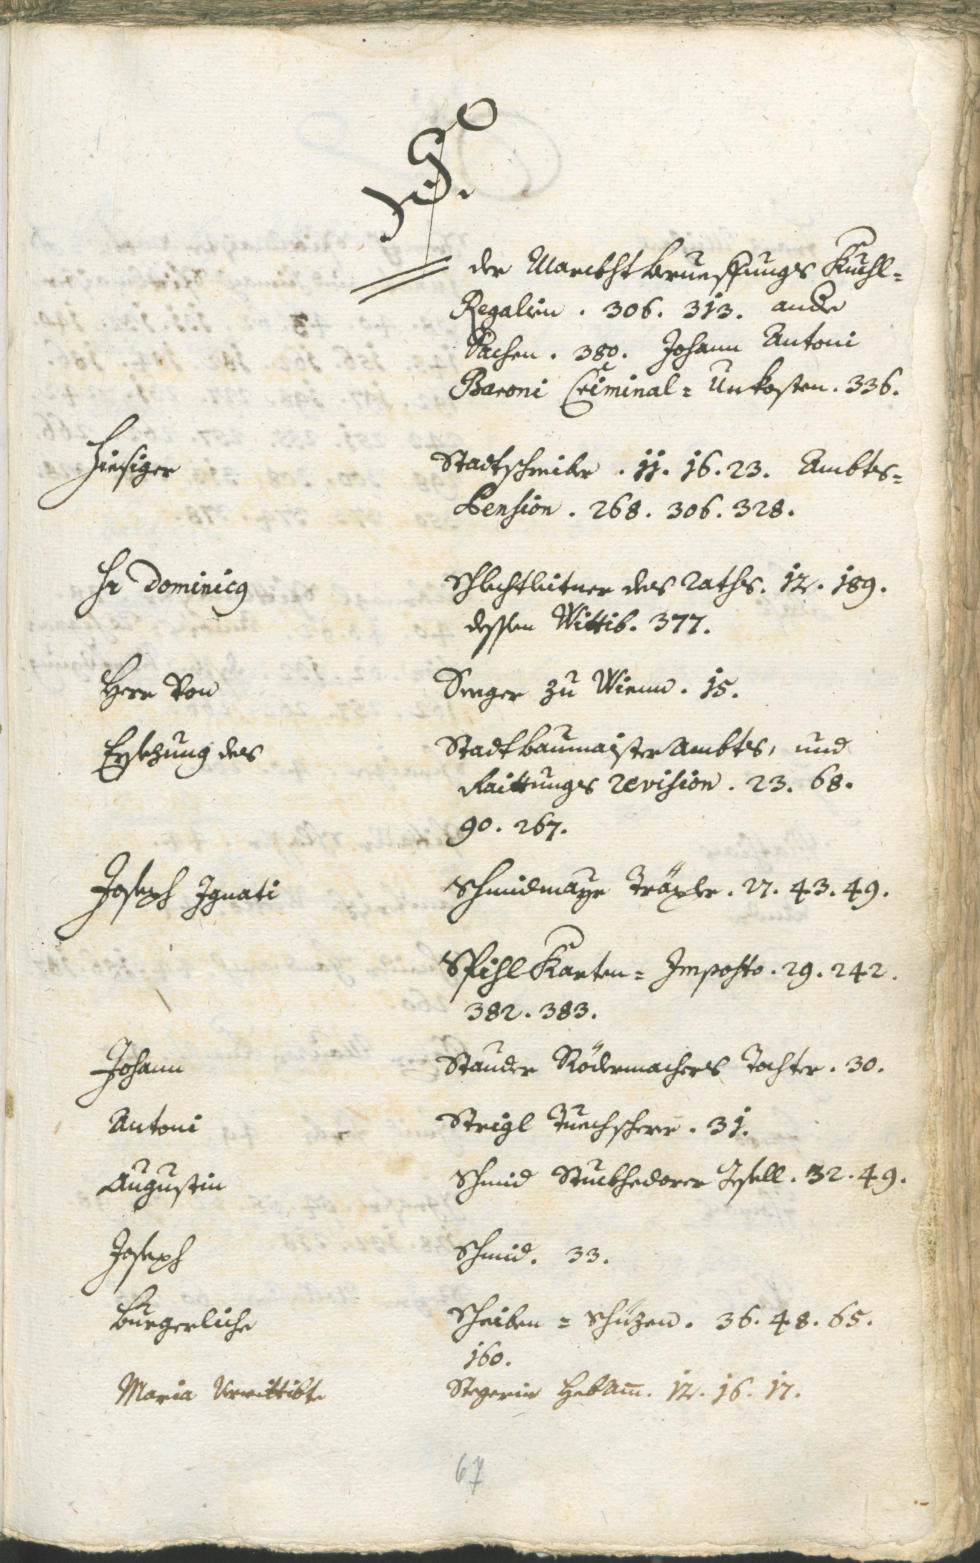 S.
der Marckht bruessungs Kuchl=
Regalien . 306. 313. ande
Sachen . 380. Johann Antoni
Baroni Criminal = Unkosten . 336.
Hiesiger Stadtschreiber . 11. 16. 23. Ambts=
Pension . 268. 306. 328.
Hr Dominicg Schlechtleitner des Raths. 12. 189.
dessen Wittib. 377.
Herr Von Senger zu Wienn . 15.
Ersezung des Stadtbaumaister Ambts, und
Raittungs revision . 23. 68.
90. 267.
Joseph Ignati Schmidmayr Träxler . 27. 43. 49.
Spihl Karten = Imposto . 29. 242.
382 . 383.
Johann Stauder Rödermachers Tochter . 30.
Antoni Strigl Tuechscherer . 31.
Augustin Schmid Stuckhedorer Gesell . 32 . 49.
Joseph Schmid . 33.
Burgerliche Scheiben = Schüzen . 36. 48. 65.
160.
Maria Verwittibte Stegerin Hebam̅. 12. 16. 17.
67